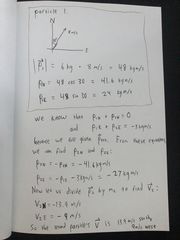 particle 1.
N
8 m/s
30°
E
|P⃗₁| = 6 kg · 8 m/s = 48 kg m/s
P₁N = 48 cos 30 = 41.6 kg m/s
P₁E = 48 sin 30 = 24 kg m/s
we know that P₁N + P₂N = 0
and P₁E + P₂E = -3 kg m/s
because we are given Pₙₑₜ. From these equations
we can find P₂N and P₂E:
P₂N = -P₁N = -41.6 kg m/s
P₂E = -P₁E - 3 kg m/s = -27 kg m/s
Now let us divide P⃗₂ by m₂ to find V⃗₂:
V₂N = -13.9 m/s
V₂E = -9 m/s
So the second particle's V⃗ is 13.9 m/s south
9 m/s west